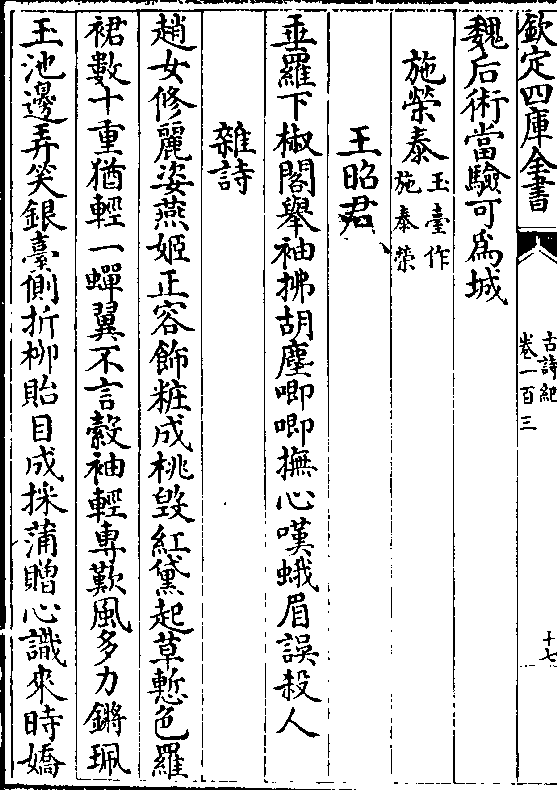 欽定四庫全書
古詩紀
卷一百三
十七
魏后術當驗可爲城
施榮泰
玉臺作
施泰榮
王昭君
垂羅下椒閣舉袖拂胡塵唧唧撫心嘆蛾眉誤殺人
雜詩
趙女修麗姿燕姬正容飾粧成桃毀紅黛起草慙色羅
裙數十重猶輕一蟬翼不言縠袖輕專歎風多力鏘珮
玉池邊弄笑銀臺側折柳貽目成採蒲贈心識來時嬌